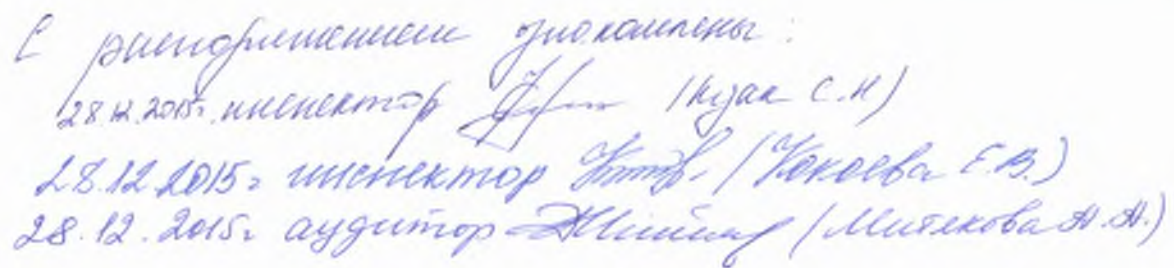 С распоряжением ознакомлены:
28.12.2015г. инспектор (Кузак С.Н)
28.12.2015г инспектор (Кокоева Е.В.)
28.12.2015г. аудитор (Митякова Н.Н.)